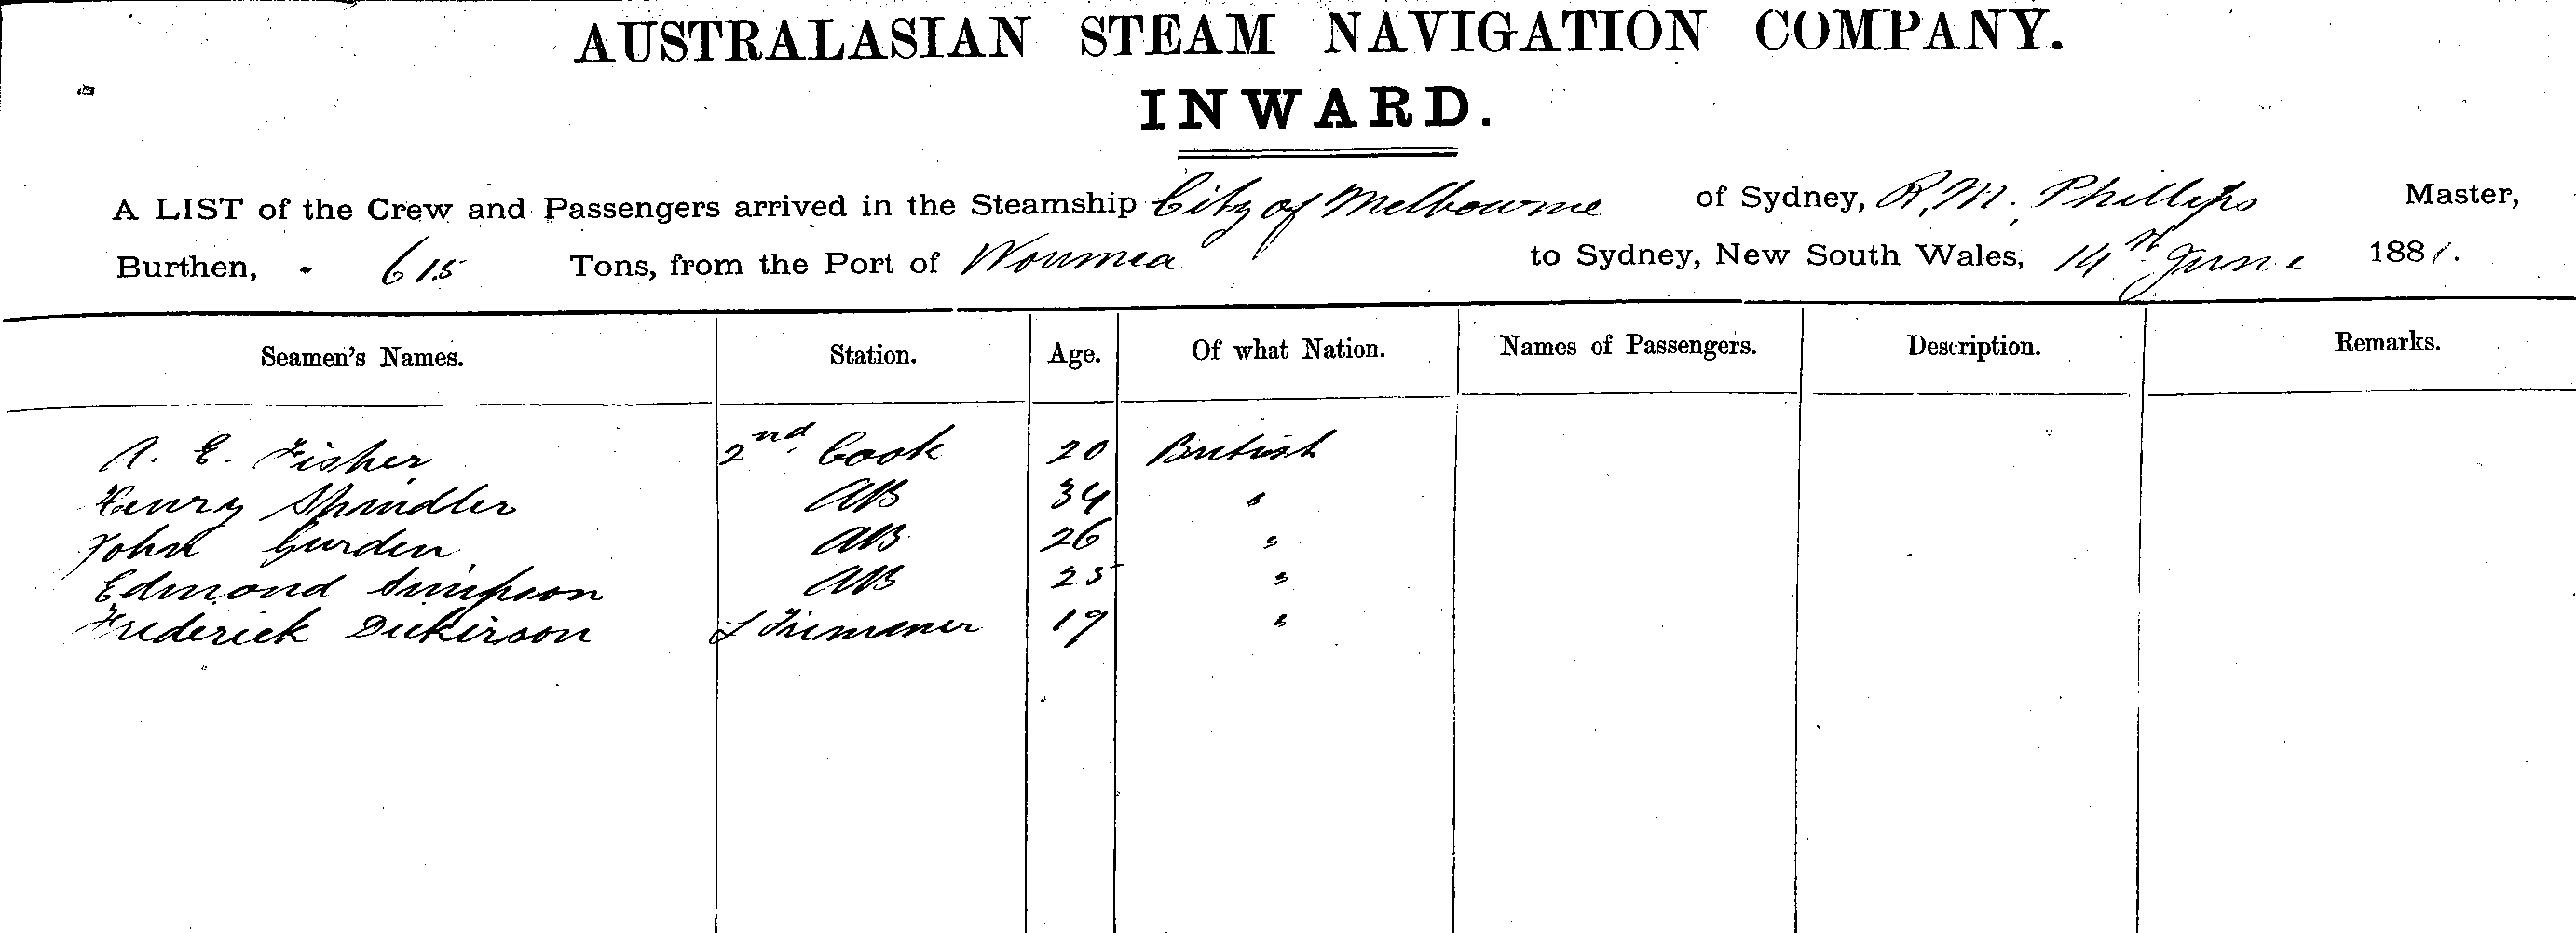 AUSTRALASIAN STEAM NAVIGATION COMPANY.
INWARD.
A LIST of the Crew and Passengers arrived in the Steamship City of Melbourne of Sydney, R. M. Phillips Master,
Burthen, - 615 Tons, from the Port of Noumea to Sydney, New South Wales, 14th June 1881.
Seamen's Names. Station. Age. Of what Nation. Names of Passengers. Description. Remarks.
A. E. Fisher 2nd Cook 20 British
Henry Spindler AB 34 "
John Gurden AB 26 "
Edmond Simpson AB 25 "
Frederick Dickirson 19 "